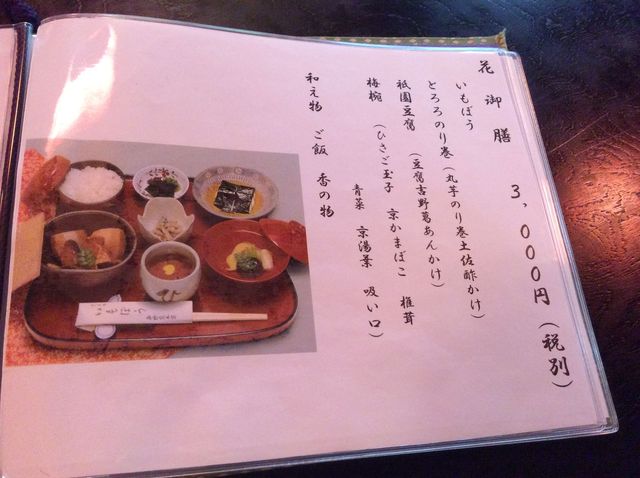 花御膳 3,000円（税別）
いもぼう
とろろのり巻（丸芋のり巻土佐酢かけ）
祇園豆腐（豆腐吉野葛あんかけ）
梅椀（ひさご玉子 京かまぼこ 椎茸
青菜 京湯葉 吸い口）
和え物 ご飯 香の物
いもぼう